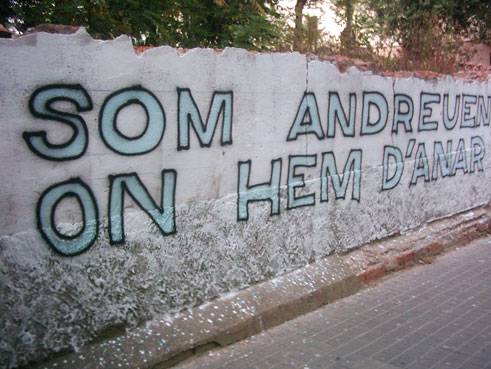 SOM ANDREUEN
ON HEM D'ANAR